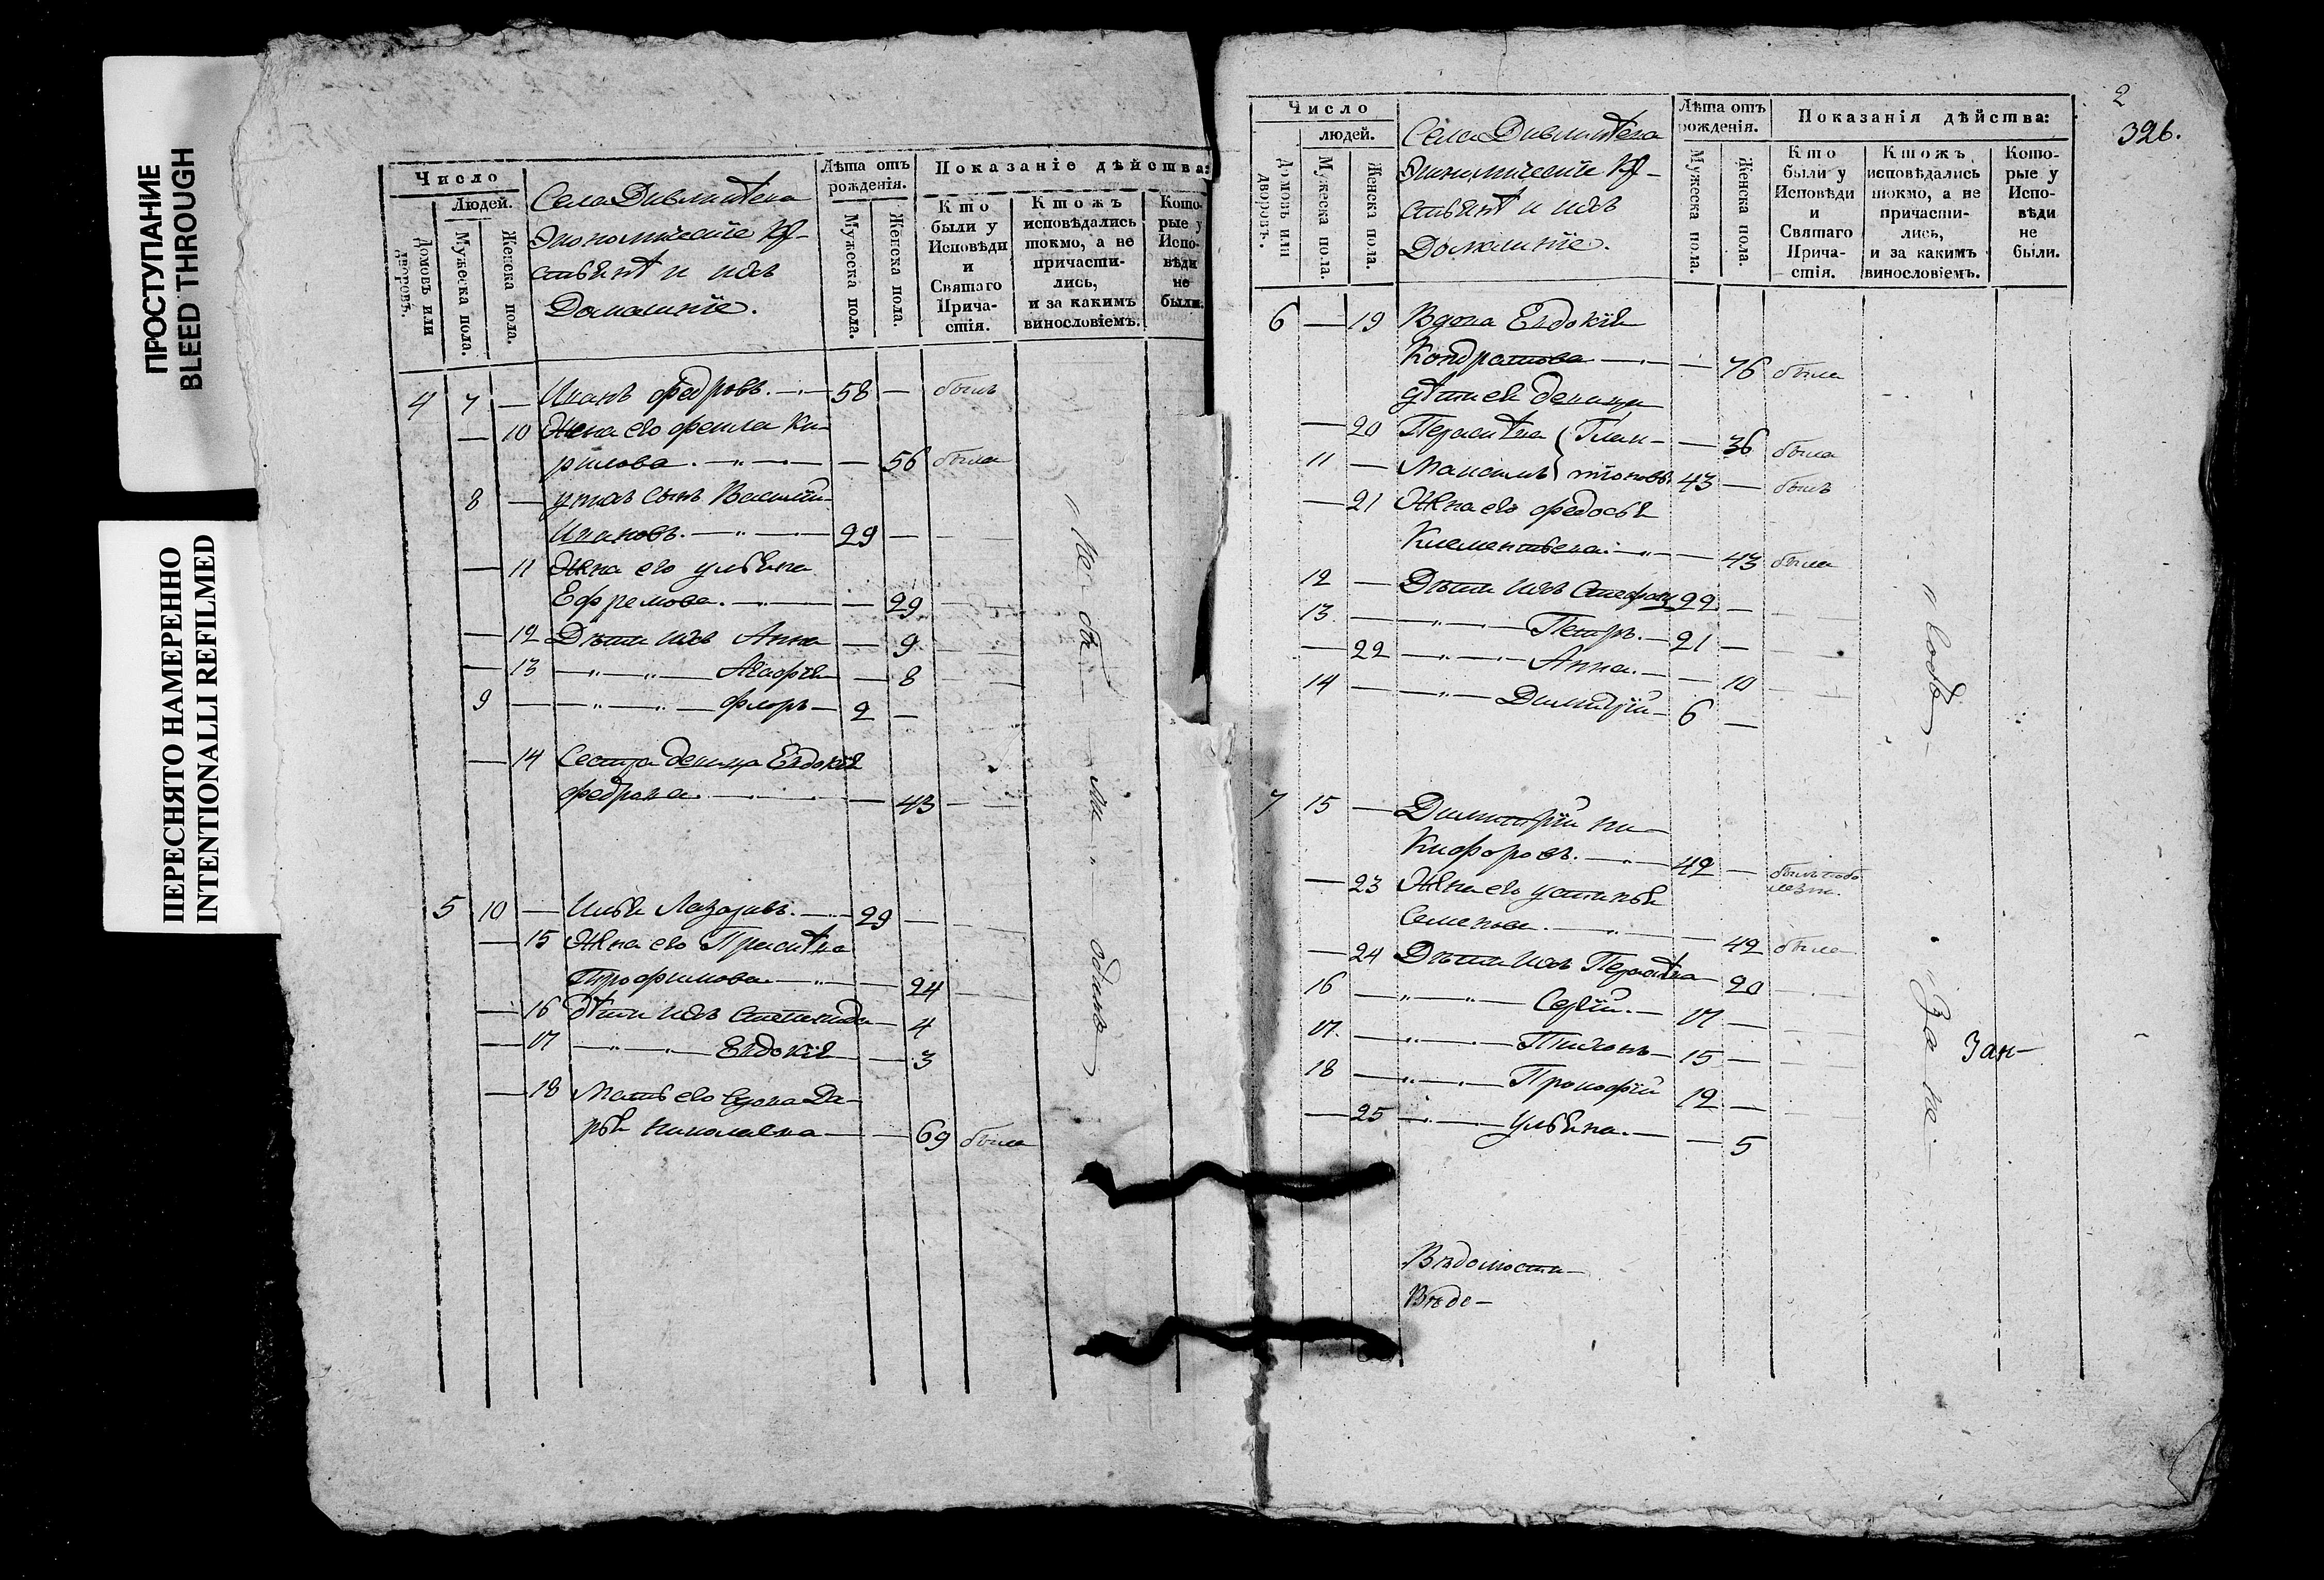 ПРОСТУПАНИЕ
BLEED THROUGH
ПЕРЕСНЯТО НАМЕРЕННО
INTENTIONALLI REFILMED
Число
Людей.
Домовъ или дворовъ.
Мужеска пола.
Женска пола.
Села
Экономическіе кр-
стьянѣ и ихъ
Домашніе.
Лѣта отъ рожденія.
Мужеска пола.
Женска пола.
Показаніе дѣйства:
Кто были у Исповѣди и Святаго Прича-стія.
Ктожъ исповѣдались токмо, а не причасти-лись, и за какимъ винословіемъ.
Кото-рые у Испо-вѣди не были.
4 7 — Иванъ Федровъ. — 58 — былъ
— 10 Жена его Фекла Ки-
рилова. — — 56 была
8 — у нихъ сынъ Василий
Ивановъ. — 29 — —
— 11 Жена его Ульяна
Ефремова. — — 29 —
— 12 Дѣти ихъ Анна — 9
— 13 — Агафія — 8
9 — — Флоръ — 2 —
— 14 Сестра девица Евдокія
Федрова. — — 43 —
5 10 — Илья Лазаревъ. — 29 —
— 15 Жена его Прасковья
Трофимова — — 24
— 16 Дѣти ихъ Степанида — 4
— 17 — Евдокія — 3
— 18 Мать его вдова Да-
рья Николаева — — 69 была
Ни одинъ
2
326.
Число
людей.
Домовъ или дворовъ.
Мужеска пола.
Женска пола.
Села
Экономическіе кр-
стьянѣ и ихъ
Домашніе.
Лѣта отъ рожденія.
Мужеска пола.
Женска пола.
Показанія дѣйства:
Кто были у Исповѣди и Святаго Прича-стія.
Ктожъ исповѣдались токмо, а не причасти-лись, и за какимъ винословіемъ.
Кото-рые у Испо-вѣди не были.
6 — 19 Вдова Евдокія
Кондратова — — 76 была
дѣти ея девица
— 20 Параскѣва — 36 была
11 — Максимъ 43 — былъ
— 21 Жена его Федосья
Клементьева — — 43 была
12 — Дѣти ихъ Стефанъ 22 —
13 — — Петръ. — 21 —
— 22 — Анна. — — 10
14 — — Димитрій — 6 —
7 15 — Димитрій Ни-
кифоровъ. — 42 —
— 23 Жена его Устинья
Семенова. — — 42 была
— 24 Дѣти ихъ Параскѣва — 20
16 — — Сергій. — 17 —
17 — — Тихонъ — 15 —
18 — — Прокофій 12 —
— 25 — Ульяна. — — 5
За не-
Зан-
Вѣдомости
Вѣдо-